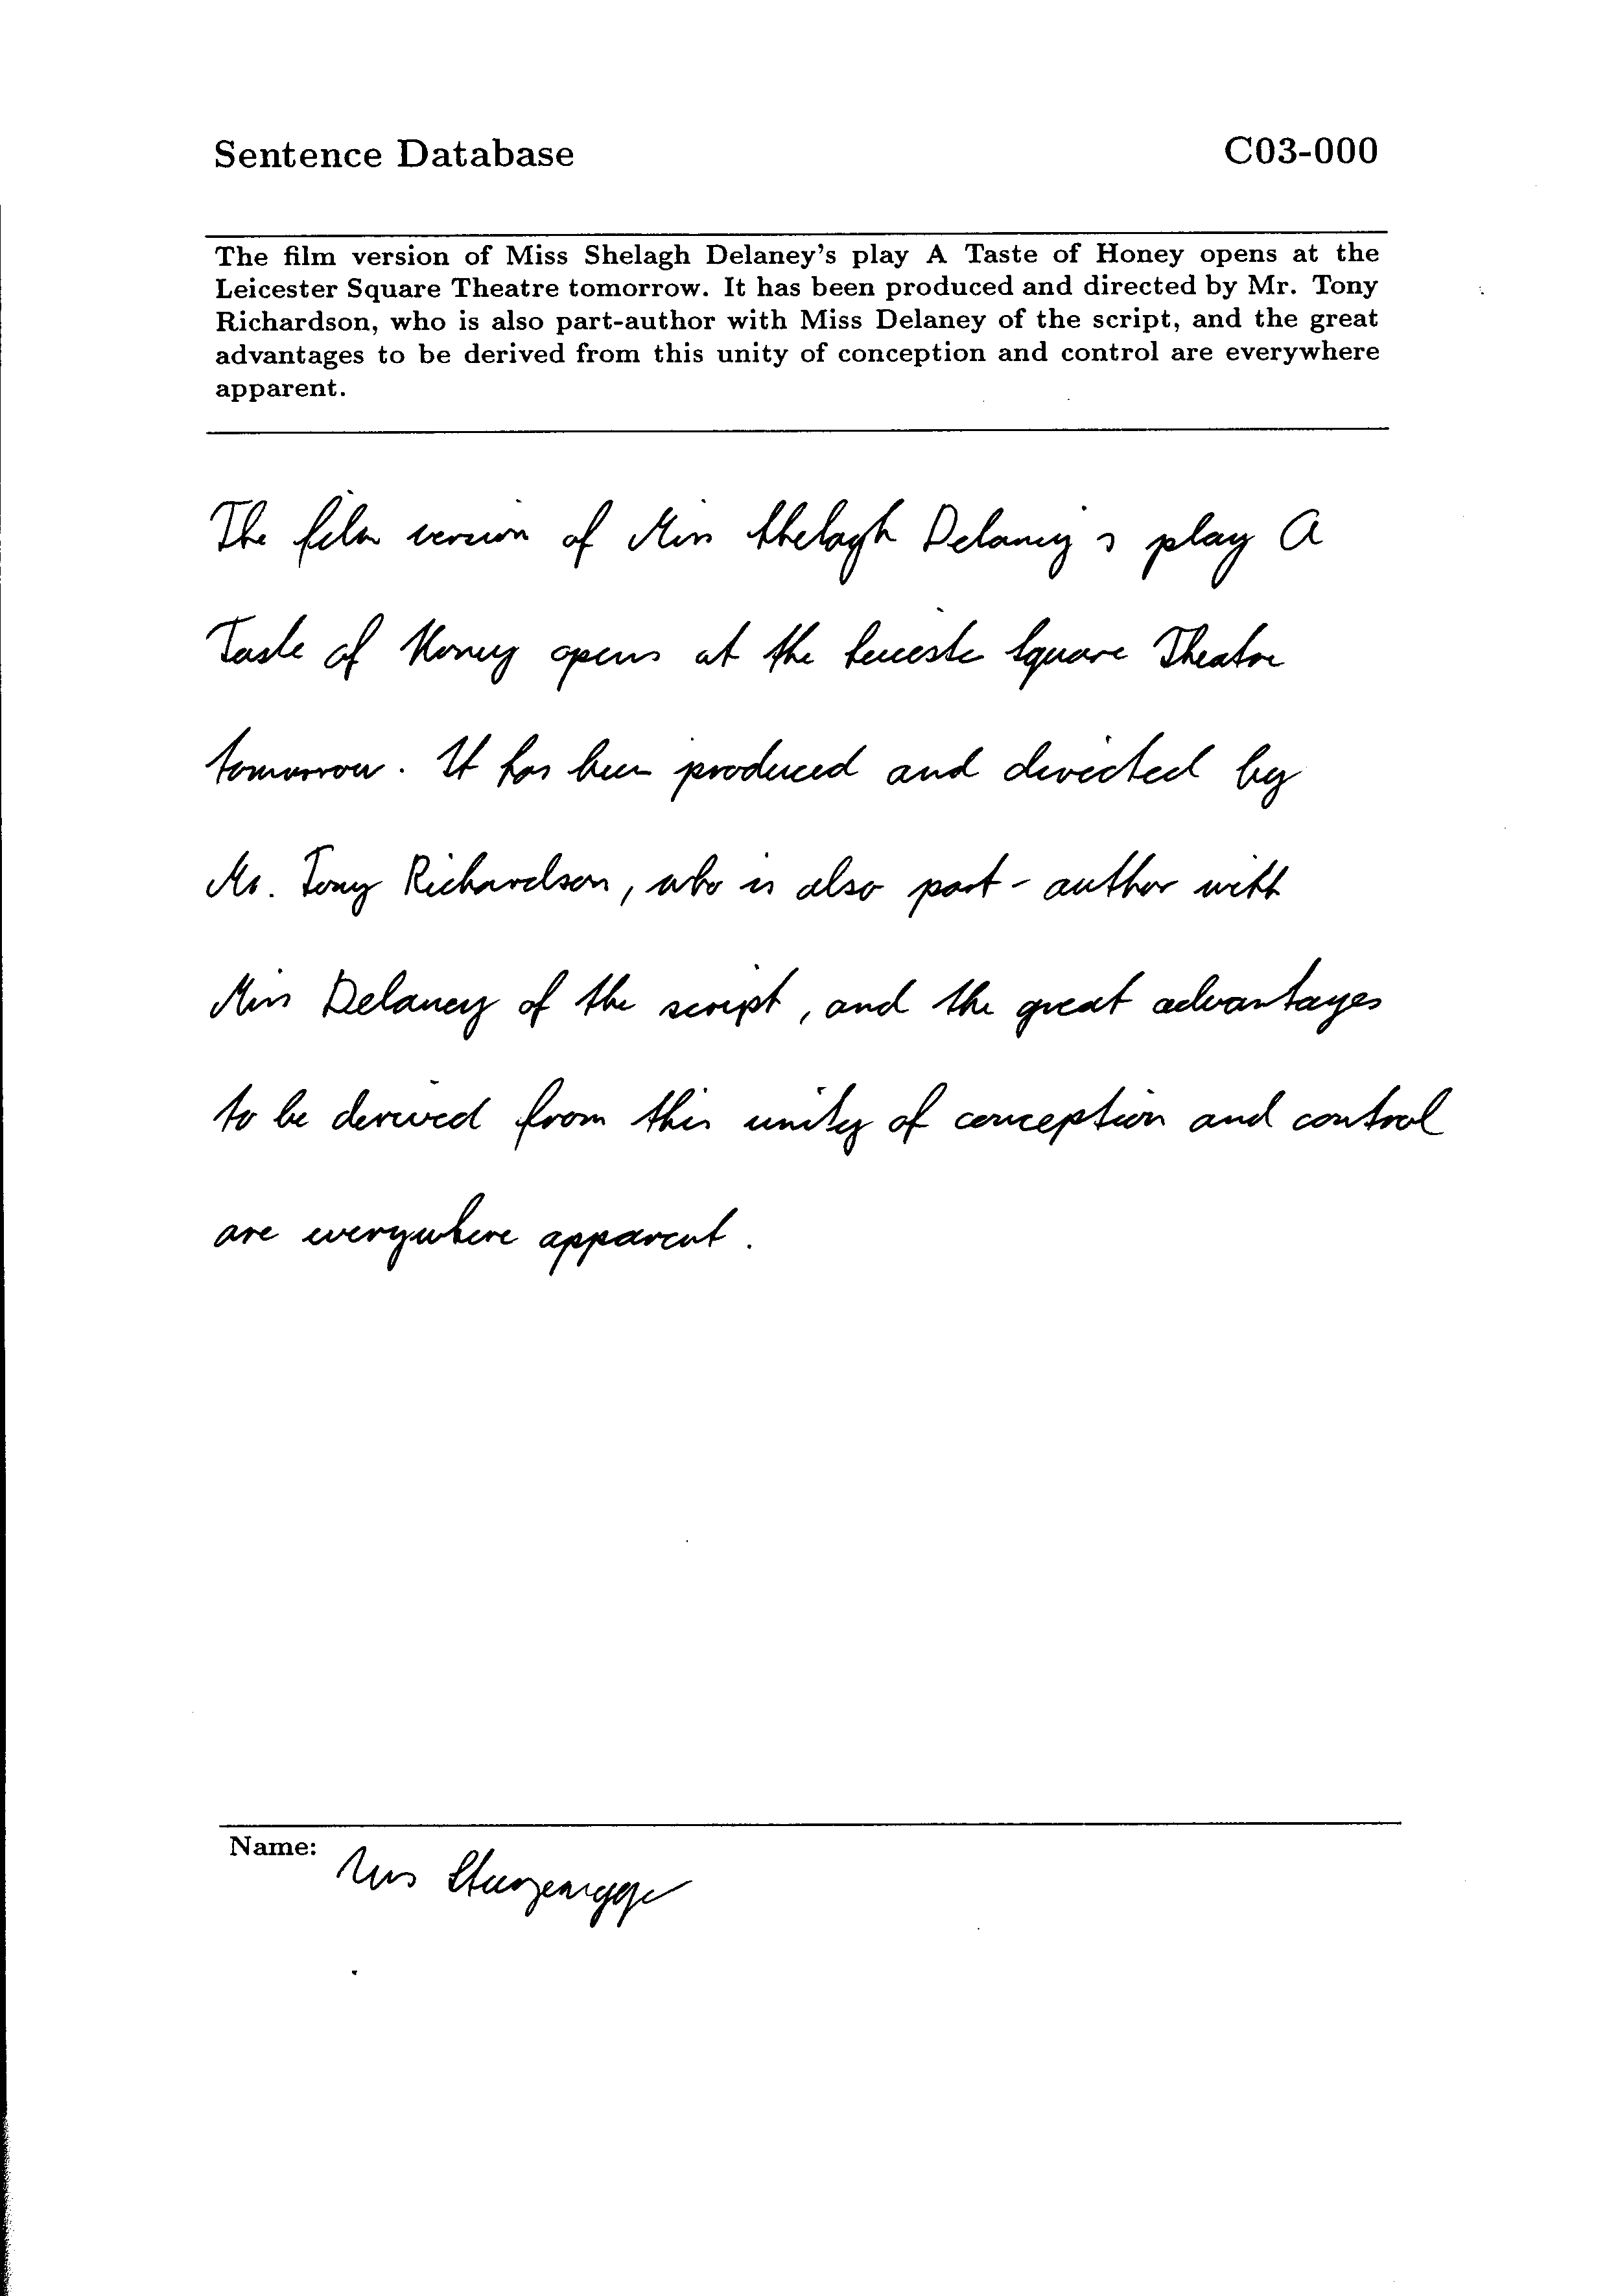 Sentence Database C03-000
The film version of Miss Shelagh Delaney's play A Taste of Honey opens at the
Leicester Square Theatre tomorrow. It has been produced and directed by Mr. Tony
Richardson, who is also part-author with Miss Delaney of the script, and the great
advantages to be derived from this unity of conception and control are everywhere
apparent.
The film version of Miss Shelagh Delaney s play A
Taste of Honey opens at the Leicester Square Theatre
tomorrow. It has been produced and directed by
Mr. Tony Richardson, who is also part-author with
Miss Delaney of the script, and the great advantages
to be derived from this unity of conception and control
are everywhere apparent.
Name: Urs